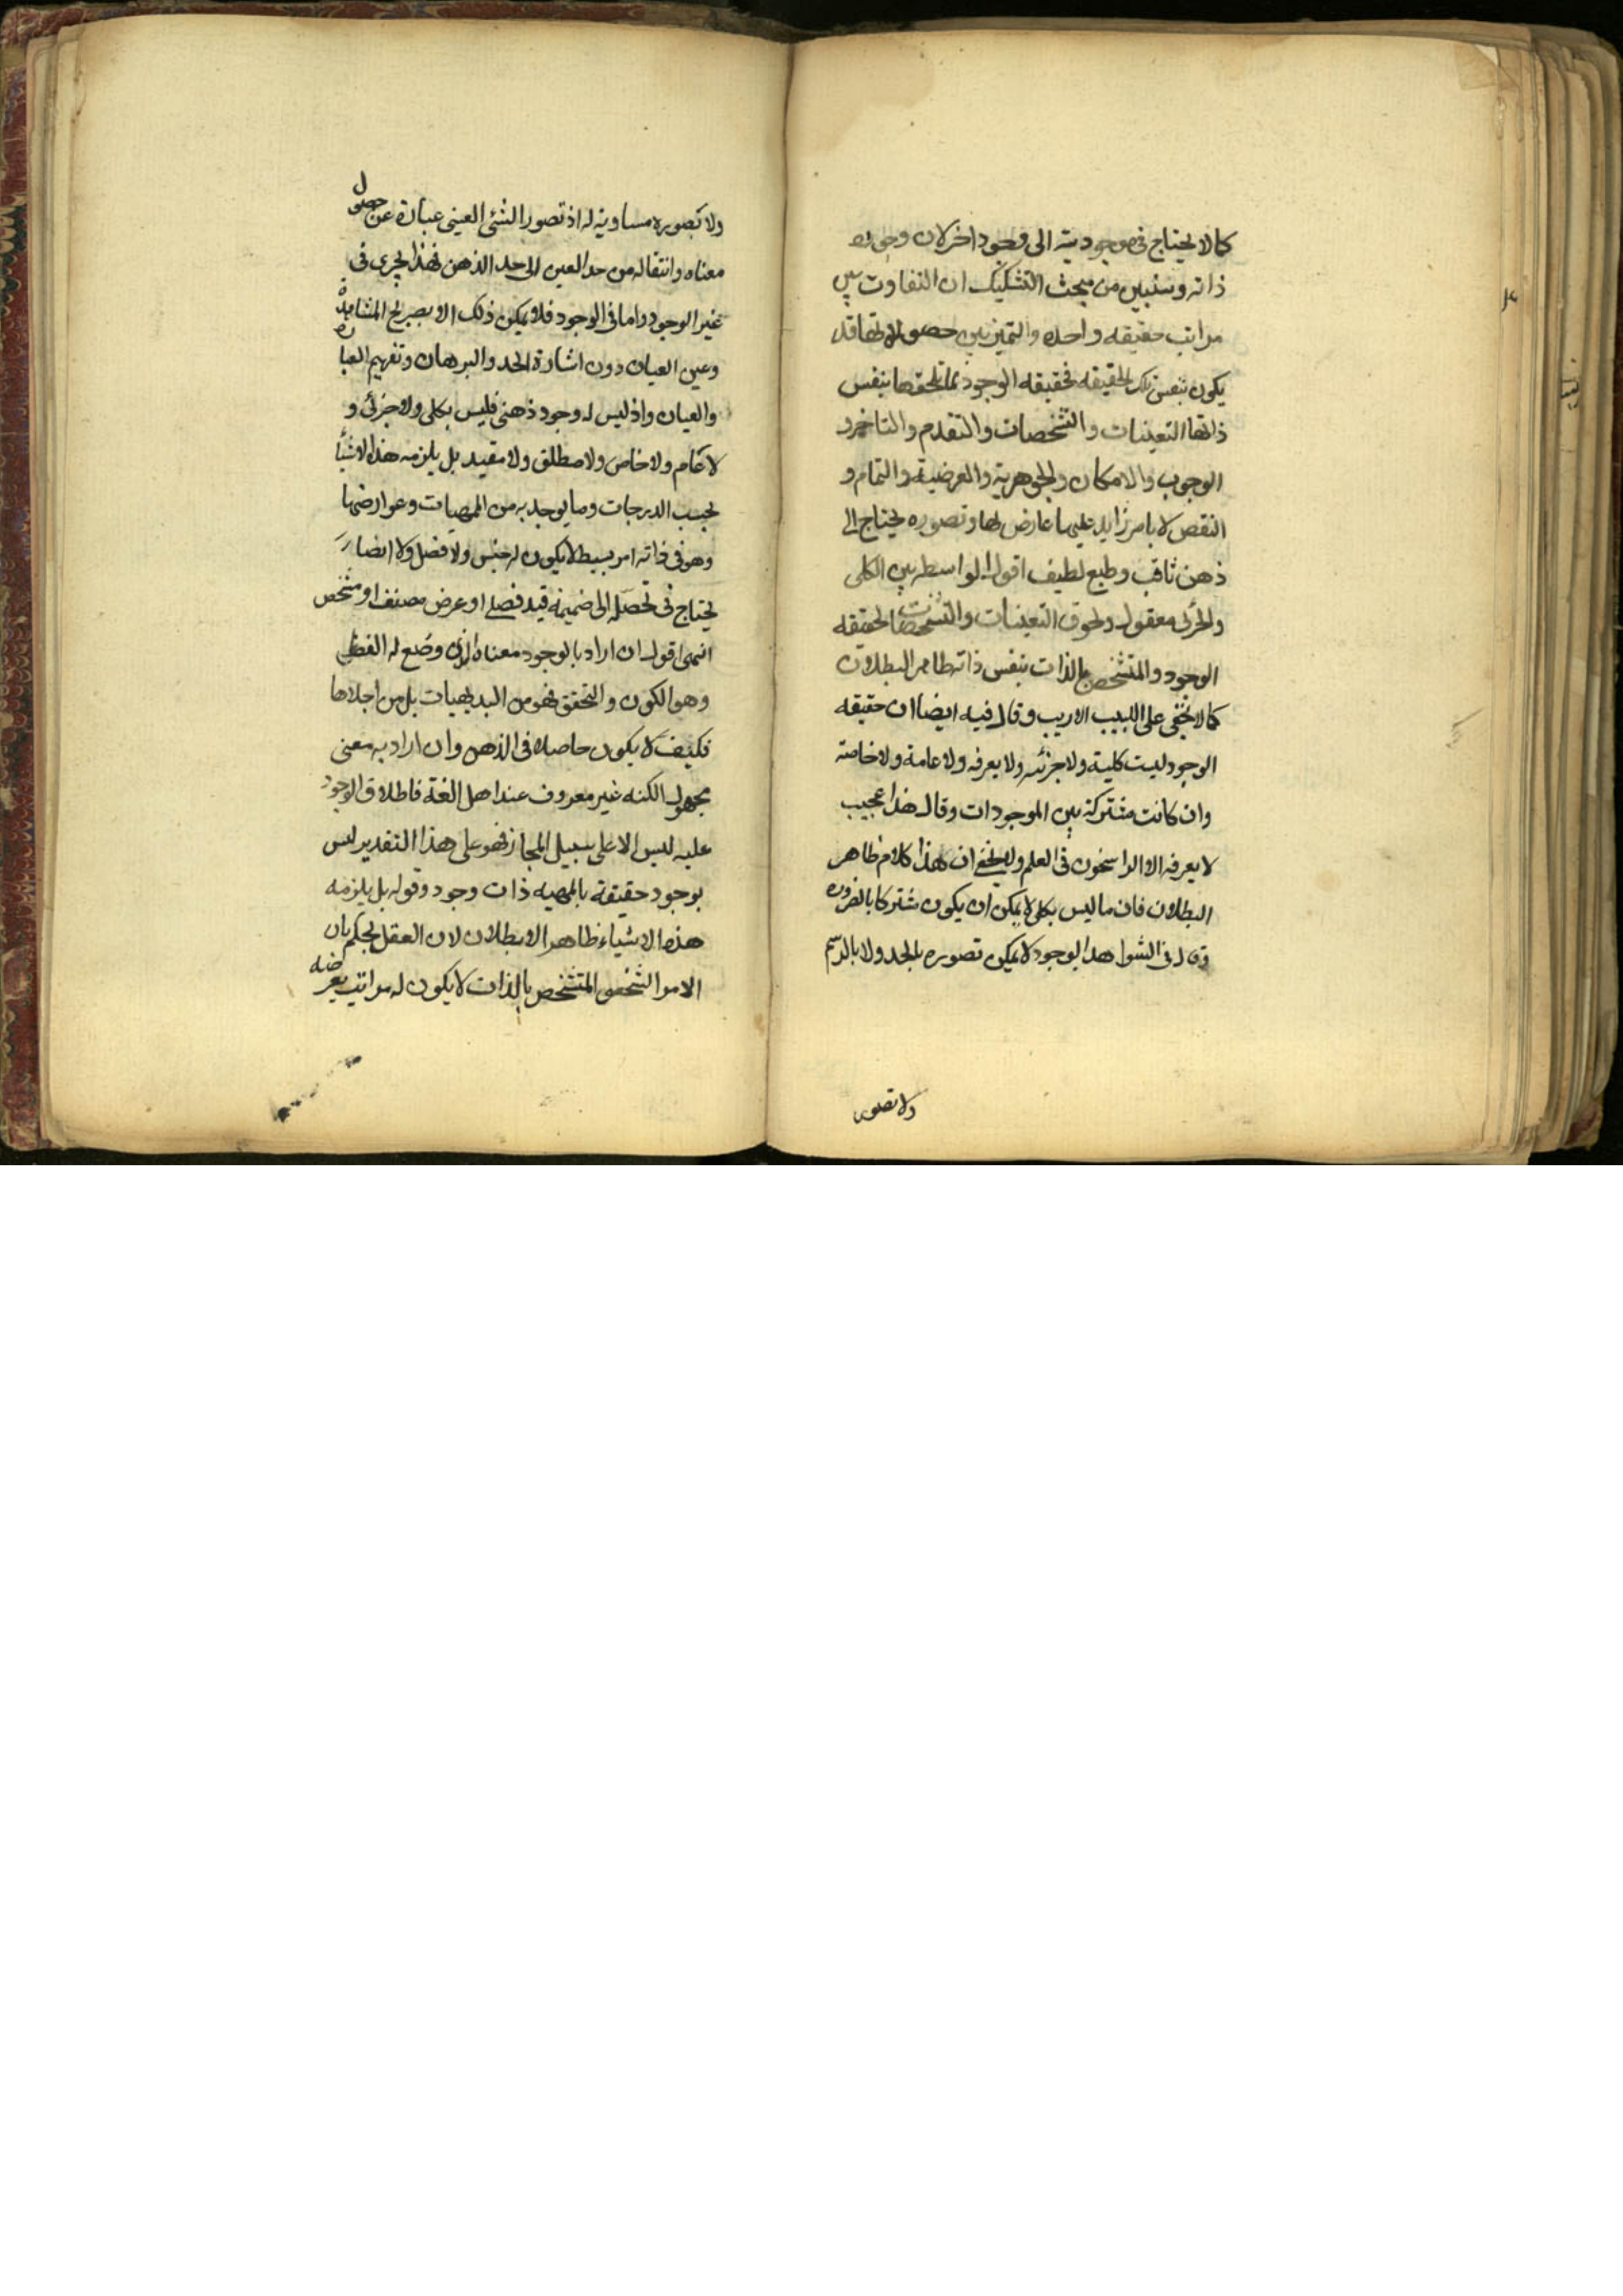 كما لا يحتاج فى موجوديته الى وجود اخر لان وجوده
ذاته وسنبين من مبحث التشكيك ان التفاوت بين
مراتب حقيقه واحده والتميز بين حصولاتها قد
يكون بنفس تلك الحقيقه فحقيقه الوجود مما تلحقها بنفس
ذاتها التعينات والتشخصات والتقدم والتاخر و
الوجوب والامكان والجوهرية والعرضية والتمام و
النقص لا بامر زايد عليها عارض لها وتصوره يحتاج الى
ذهن ثاقب وطبع لطيف اقول الواسطه بين الكلى
والجزئى معقول ولحوق التعينات والتشخصات لحقيقه
الوجود والمتشخص بالذات بنفس ذاته ظاهر البطلان
كما لا يخفى على اللبيب الاريب وقال فيه ايضا ان حقيقه
الوجود ليست كلية ولا جزئيه ولا يعرفه ولا عامة ولا خاصة
وان كانت مشتركة بين الموجودات وقال هذا عجيب
لا يعرفه الا الراسخون فى العلم ولا يخفى ان هذا كلام ظاهر
البطلان فان ما ليس بكلى لا يمكن ان يكون مشتركا بالضروره
وقال فى الشواهد الوجود لا يمكن تصوره بالحد ولا بالرسم
ولا تصور
ولا بصوره مساوية له اذ تصور الشئ العينى عبارة عن حصول
معناه وانتقاله من حد العين الى حد الذهن فهذا يجرى فى
غير الوجود واما فى الوجود فلا يمكن ذلك الا بصريح المشاهدة
وعين العيان دون اشارة الحد والبرهان وتفهيم العبارة
والعيان واذ ليس له وجود ذهنى فليس بكلى ولا جزئى و
لا عام ولا خاص ولا مطلق ولا مقيد بل يلزمه هذه الاشيأ
بحسب الدرجات وما يوجد به من المهيات وعوارضها
وهو فى ذاته امر بسيط لا يكون له جنس ولا فصل ولا ايضا
يحتاج فى تحصله الى ضميمة قيد فصلى او عرض مصنف او مشخص
انتهى اقول ان اراد بالوجود معناه الذى وضع له الفظ
وهو الكون والتحقق فهو من البديهيات بل من اجلاها
فكيف لا يكون حاصلا فى الذهن وان اراد به معنى
مجهول الكنه غير معروف عند اهل الغة فاطلاق الوجود
عليه ليس الا على سبيل المجاز فهو على هذا التقدير ليس
بوجود حقيقة بالمهيه ذات وجود وقوله بل يلزمه
هذه الاشياء ظاهر الابطلان لان العقل يحكم بان
الامر الشخصى المتشخص بالذات لا يكون له مراتب يعرضه